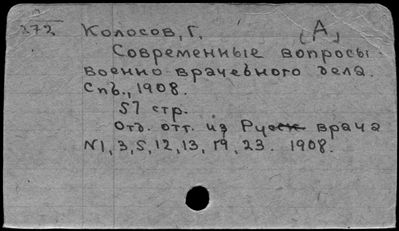 272 Колосов, Г. (А)
Современные вопросы
военно врачебного дела.
Спб., 1908.
57 стр.
Отд. отт. из Русск врача
N1, 3, 5, 12, 13, 19, 23. 1908.